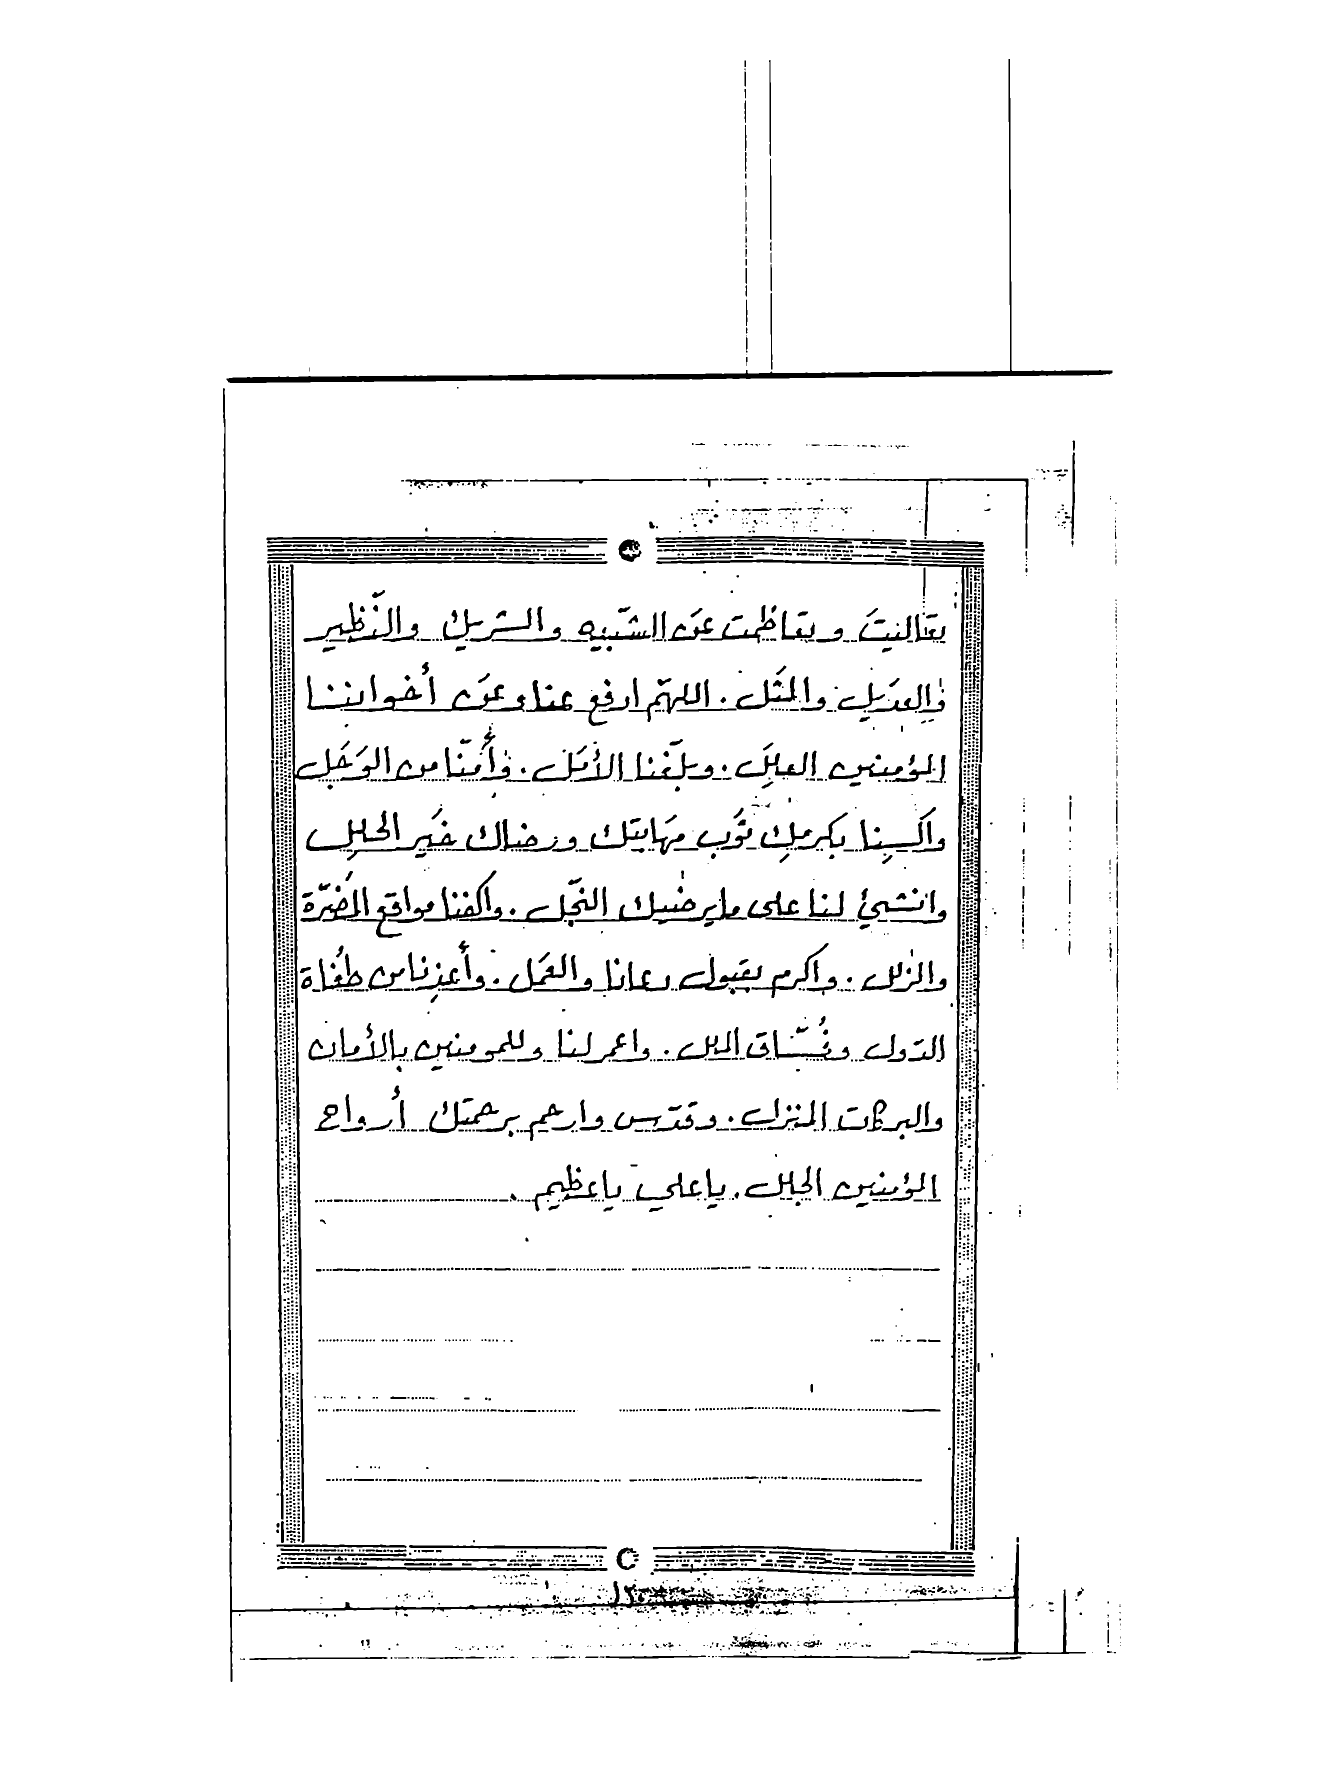 تعاليتَ وتعاظمت عن الشّبيه والشريك والنّظير
والعديل والمَثَل. اللهمّ ارفع عنا وعن أخواننا
المؤمنين العِلَل. وبلّغنا الأمَل. وأَمنّا من الوَجَل
واكسِنا بكرمِك ثَوب مهابتك ورضاك خَير الحلل
وانشئ لنا على ما يرضيك النجّل. واكفنا مواقع المَضَرّة
والزلل. واكرم بقبول دعانا والعَمل. وأعِذنا من طُغاة
الدّول وفُسّاق الملل. واعمر لنا وللمومنين بالأمان
والبركات المنزل. وقدّس وارحم برحمتك أرواح
المؤمنين الجلل. يا علي يا عظيم.
١٢٠